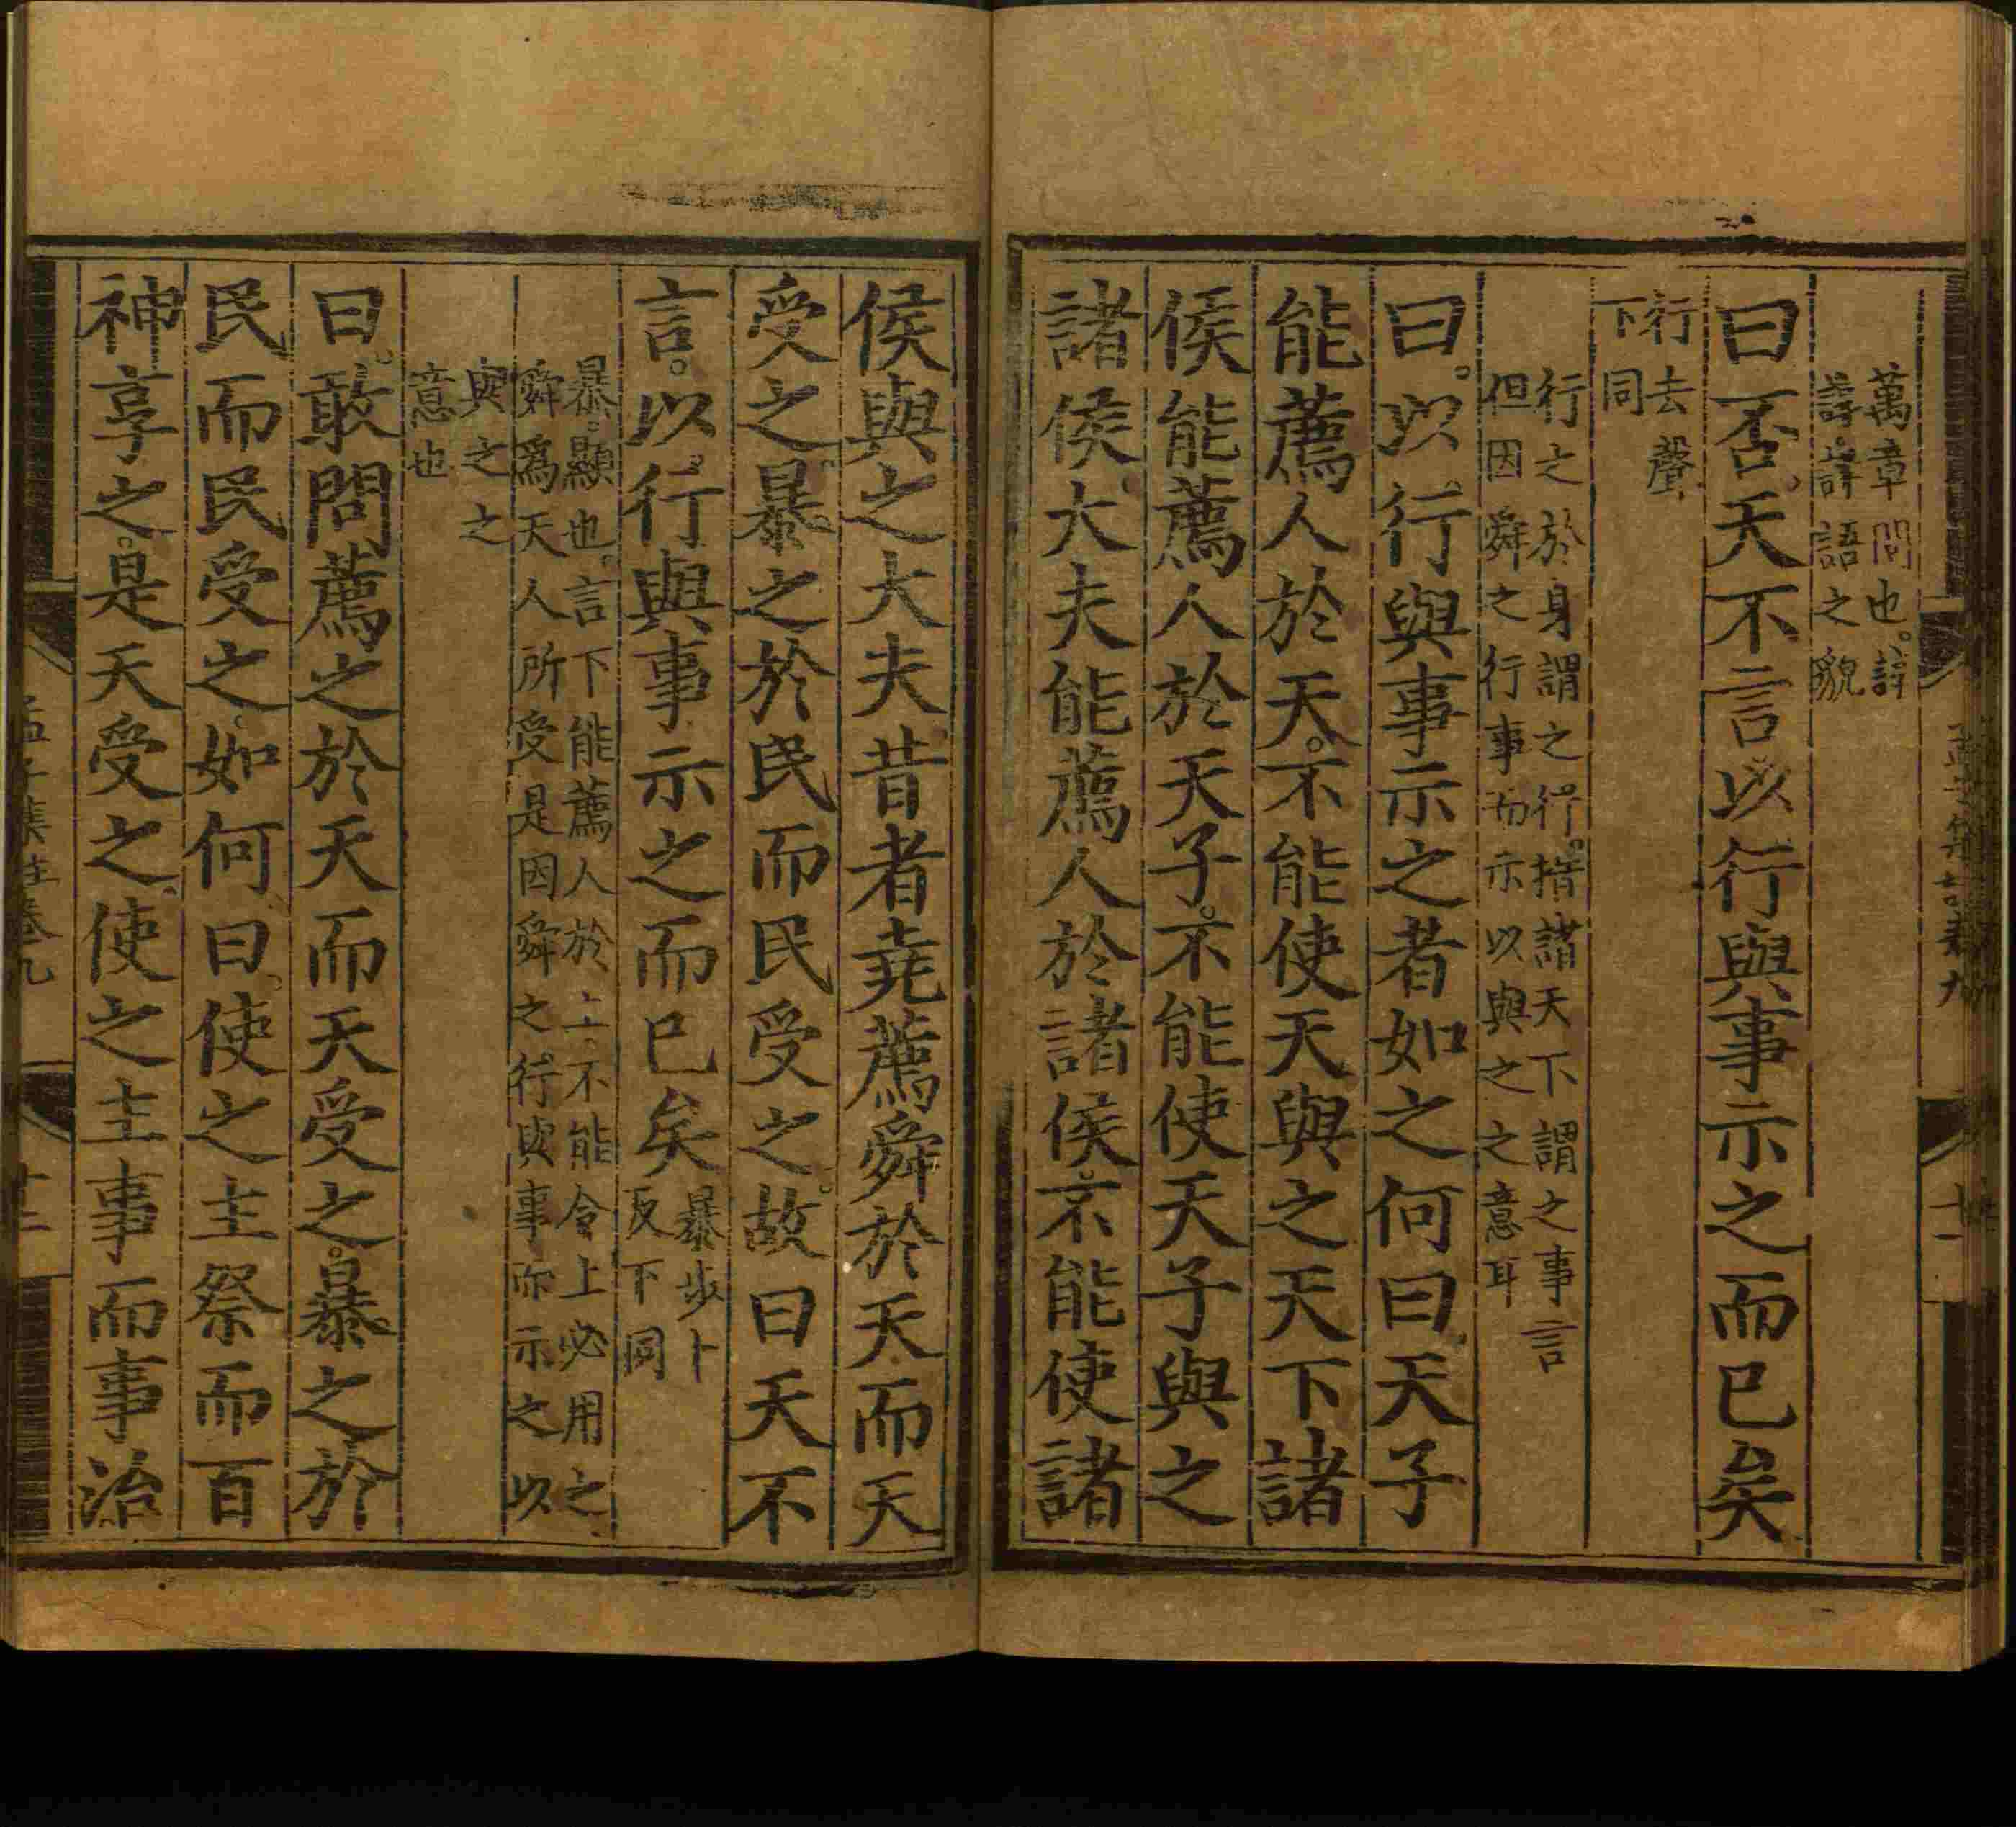 萬章問也。諄
諄詳語之貌
曰否天不言以行與事示之而已矣
行去聲
下同
行之於身謂之行。措諸天下謂之事言
但因舜之行事而示以與之之意耳
曰。以行與事示之者如之何曰天子
能薦人於天。不能使天與之天下諸
侯能薦人於天子。不能使天子與之
諸侯。大夫能薦人於諸侯。不能使諸
侯與之大夫昔者堯薦舜於天而天
受之暴之於民而民受之。故曰天不
言。以行與事示之而已矣
暴步卜
反下同
暴。顯也。言下能薦人於上。不能令上必用之。
舜爲天人所受是因舜之行與事而示之以
與之之
意也
曰。敢問薦之於天而天受之。暴之於
民而民受之。如何曰。使之主祭而百
神享之。是天受之。使之主事而事治
孟子集註卷九
十一
孟子集註卷九
十二